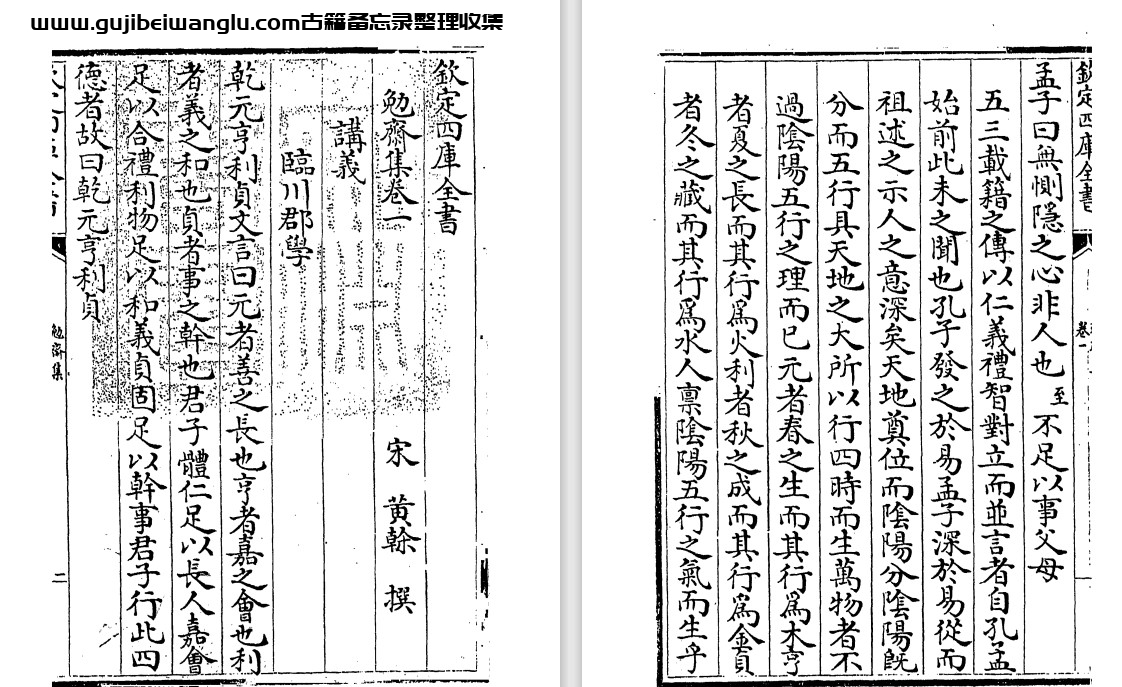 www.gujibeiwanglu.com古籍备忘录整理收集
欽定四庫全書
勉齋集卷一
宋 黃榦 撰
講義
臨川郡學
乾元亨利貞文言曰元者善之長也亨者嘉之會也利
者義之和也貞者事之幹也君子體仁足以長人嘉會
足以合禮利物足以和義貞固足以幹事君子行此四
德者故曰乾元亨利貞
勉齋集
二
欽定四庫全書
卷一
孟子曰無惻隱之心非人也至不足以事父母
五三載籍之傳以仁義禮智對立而並言者自孔孟
始前此未之聞也孔子發之於易孟子深於易從而
祖述之示人之意深矣天地奠位而陰陽分陰陽旣
分而五行具天地之大所以行四時而生萬物者不
過陰陽五行之理而已元者春之生而其行爲木亨
者夏之長而其行爲火利者秋之成而其行爲金貞
者冬之藏而其行爲水人禀陰陽五行之氣而生乎